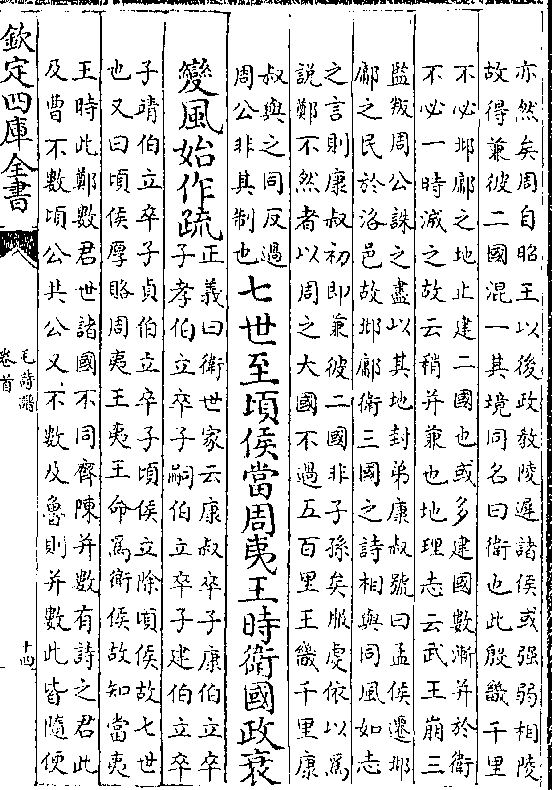 亦然矣周自昭王以後政教陵遲諸侯或强弱相陵
故得兼彼二國混一其境同名曰衛也此殷畿千里
不必邶鄘之地止建二國也或多建國數漸并於衛
不必一時滅之故云稍并兼也地理志云武王崩三
監叛周公誅之盡以其地封弟康叔號曰孟侯遷邶
鄘之民於洛邑故邶鄘衛三國之詩相與同風如志
之言則康叔初即兼彼二國非子孫矣服虔依以為
說鄭不然者以周之大國不過五百里王畿千里康
叔與之同反過
周公非其制也
七世至頃侯當周夷王時衛國政衰
變風始作疏
正義曰衛世家云康叔卒子康伯立卒
子孝伯立卒子嗣伯立卒子建伯立卒
子靖伯立卒子貞伯立卒子頃侯立除頃侯故七世
也又曰頃侯厚賂周夷王夷王命為衛侯故知當夷
王時此鄭數君世諸國不同齊陳并數有詩之君此
及曹不數頃公共公又不數及魯則并數此皆隨便
欽定四庫全書
毛詩譜
卷首
十四